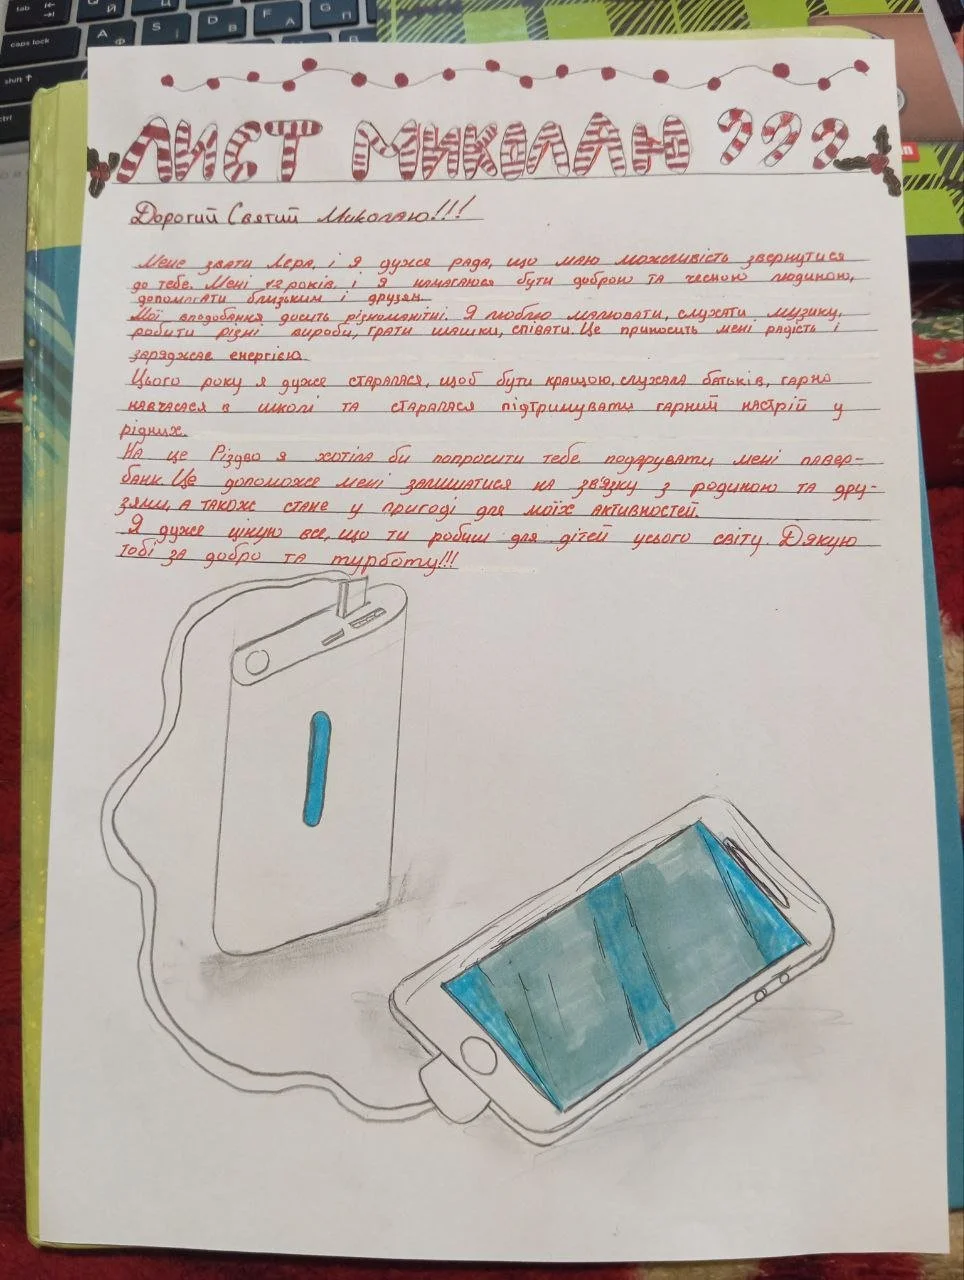 ЛИСТ МИКОЛАЮ
Дорогий Святий Миколаю!!!
Мене звати Лєра, і я дуже рада, що маю можливість звернутися
до тебе. Мені 12 років, і я намагаюся бути доброю та чесною людиною,
допомагати близьким і друзям.
Мої вподобання досить різноманітні. Я люблю малювати, слухати музику,
робити різні вироби, грати шашки, співати. Це приносить мені радість і
заряджає енергією.
Цього року я дуже старалася, щоб бути кращою, слухала батьків, гарно
навчалася в школі та старалася підтримувати гарний настрій у
рідних.
На це Різдво я хотіла би попросити тебе подарувати мені павер-
банк. Це допоможе мені залишатися на зв'язку з родиною та дру-
зями, а також стане у пригоді для моїх активностей.
Я дуже ціную все, що ти робиш для дітей усього світу. Дякую
тобі за добро та турботу!!!
tab
Й
Ц
caps lock
A
Ф
S
І
D
В
F
А
G
П
shift